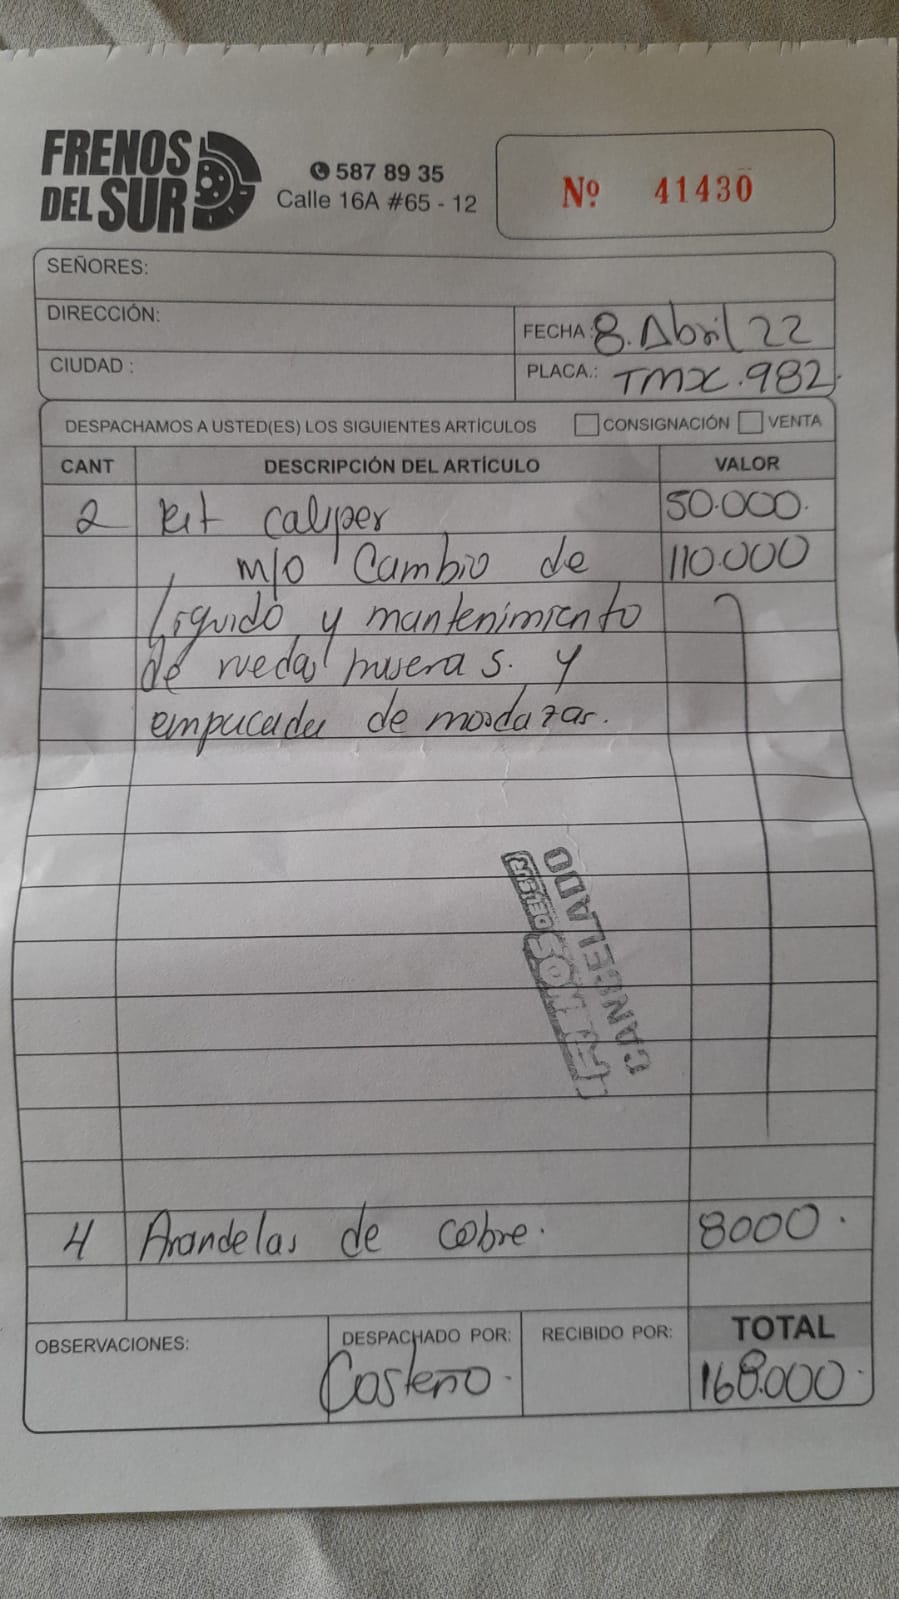 FRENOS
DEL SUR
587 89 35
Calle 16A #65 - 12
Nº 41430
SEÑORES:
DIRECCIÓN:
FECHA: 8. Abril 22
CIUDAD :
PLACA.: TMX.982.
DESPACHAMOS A USTED(ES) LOS SIGUIENTES ARTÍCULOS CONSIGNACIÓN VENTA
CANT DESCRIPCIÓN DEL ARTÍCULO VALOR
2 kit caliper 50.000.
m/o Cambio de 110.000
liquido y mantenimiento
de ruedas traseras. y
de mordazas.
FRENOS DEL SUR
CANCELADO
4 Arandelas de cobre. 8000.
OBSERVACIONES:
DESPACHADO POR:
Costeño.
RECIBIDO POR:
TOTAL
168.000.